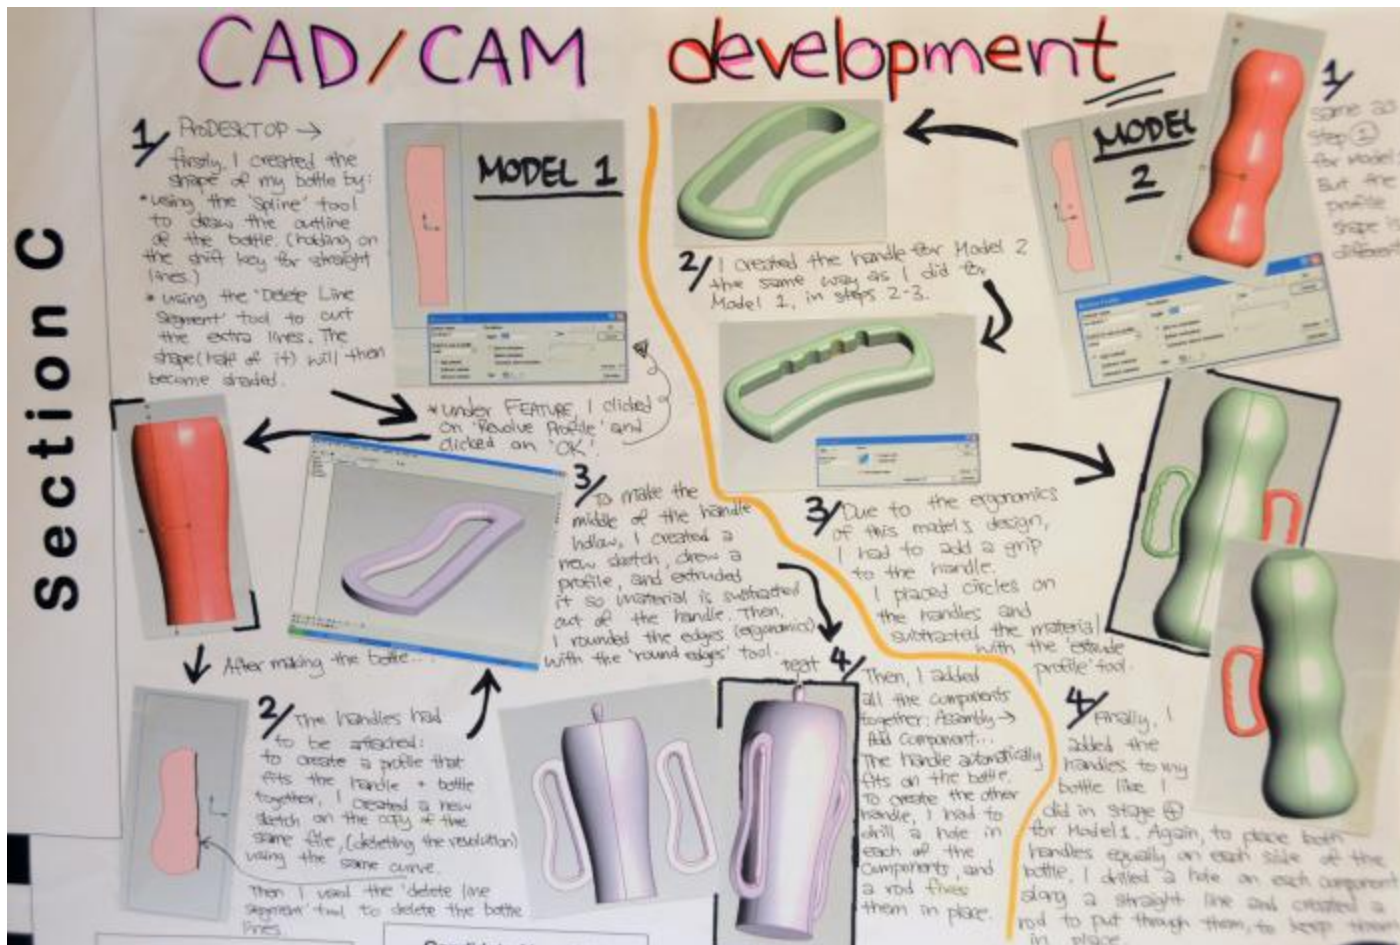 CAD/CAM development
Section C
1/ ProDESKTOP →
firstly, I created the
shape of my bottle by:
*using the 'Spline' tool
to draw the outline
of the bottle. (holding on
the shift key for straight
lines.)
* using the 'Delete Line
Segment' tool to cut
the extra lines. The
shape (half of it) will then
become shaded.
MODEL 1
*under FEATURE, I clicked
on 'Revolve Profile' and
clicked on 'OK'.
After making the bottle...
2/ The handles had
to be attached:
to create a profile that
fits the handle + bottle
together, I created a new
sketch on the copy of the
same file, (deleting the revolution)
using the same curve.
Then I used the 'delete line
segment' tool to delete the bottle
lines.
3/ To make the
middle of the handle
hollow, I created a
new sketch, drew a
profile, and extruded
it so material is subtracted
out of the handle. Then,
I rounded the edges (ergonomics)
with the 'round edges' tool.
4/ Then, I added
all the components
together: Assembly →
Add Component...
The handle automatically
fits on the bottle.
To create the other
handle, I had to
drill a hole in
each of the
components, and
a rod fixes
them in place.
MODEL
2
1/
same as
step 1
for Model
But the
profile
shape is
different
2/ I created the handle for Model 2
the same way as I did for
Model 1, in steps 2-3.
3/ Due to the ergonomics
of this model's design,
I had to add a grip
to the handle.
I placed circles on
the handles and
subtracted the material
with the 'extrude
profile' tool.
4/ Finally, I
added the
handles to my
bottle like I
did in stage 4
for Model 1. Again, to place both
handles equally on each side of the
bottle, I drilled a hole on each component
along a straight line and created a
rod to put through them, to keep them
in place.